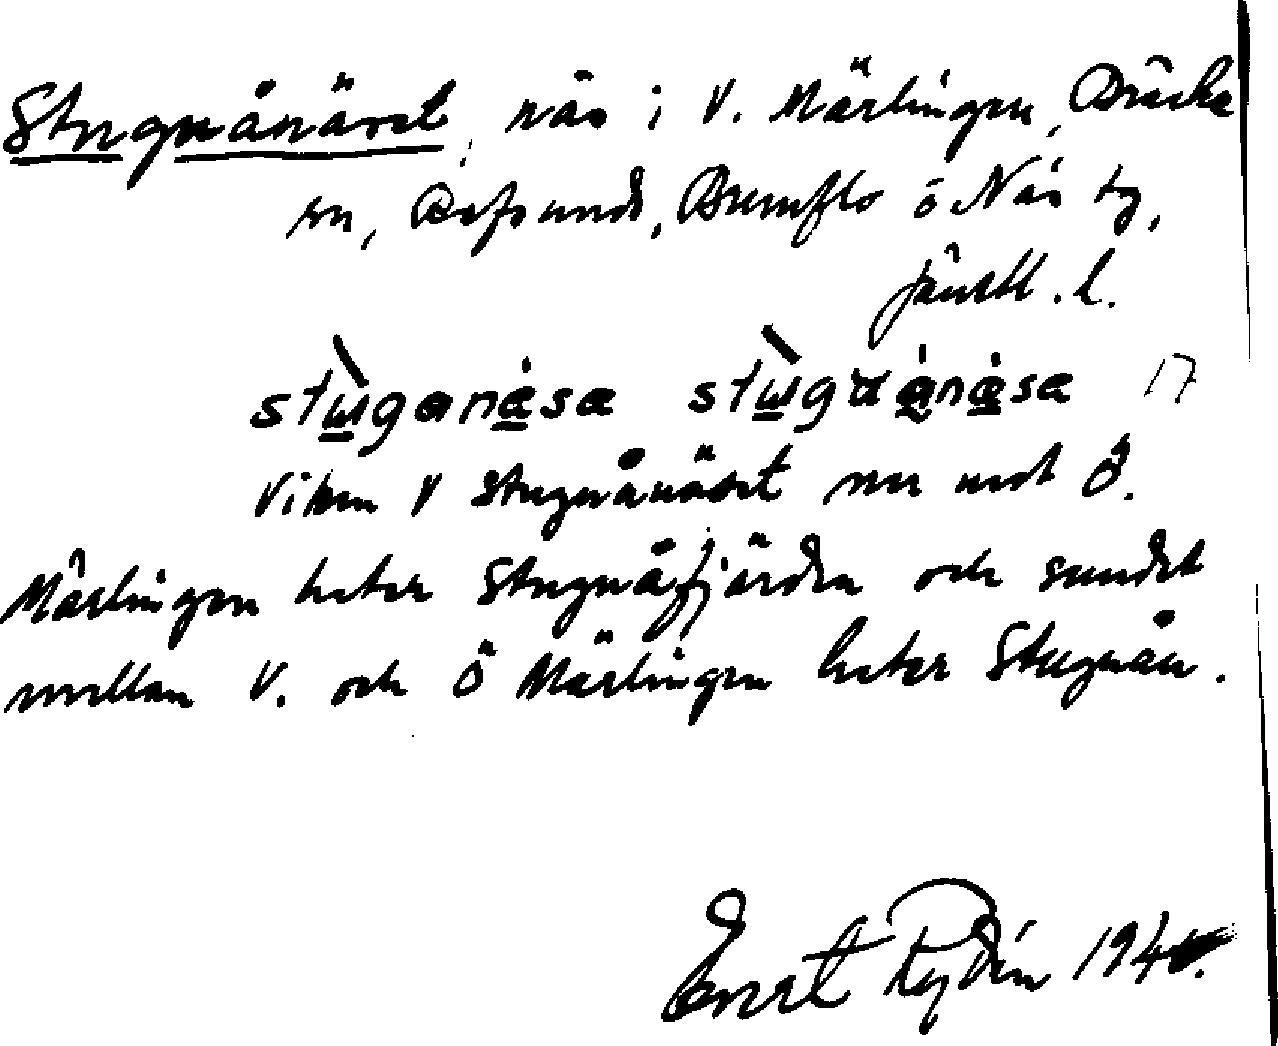 Stugunånäset, näs i V. Märlingen, Bräcke
sn, Refsunds, Brunflo o Näs tg,
Jämtl. l.
stùganäsæ stùguånäsæ 17
Viken V Stugunånäset mer mot Ö.
Märlingen heter Stugunåfjärden och sundet
mellan V. och Ö Märlingen heter Stugunån.
Ernst Rydín